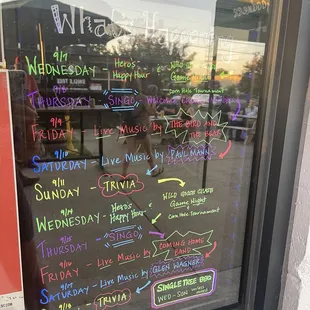 What's Happening
9/7
WEDNESDAY - Hero's Happy Hour & WILD GOOSE CLUB Game Night
Corn Hole Tournament
THURSDAY - SINGO
9/9
FRIDAY - Live Music by THE BIRD AND THE BEAR
9/10
SATURDAY - Live Music by PAUL MANN
9/11
SUNDAY - TRIVIA
9/14
WEDNESDAY - Hero's Happy Hour & WILD GOOSE CLUB Game Night
Corn Hole Tournament
THURSDAY - SINGO
FRIDAY - Live Music by COMING HOME BAND
SATURDAY - Live Music by GLEN WAGNER
TRIVIA
SINGLETREE BBQ
WED-SUN